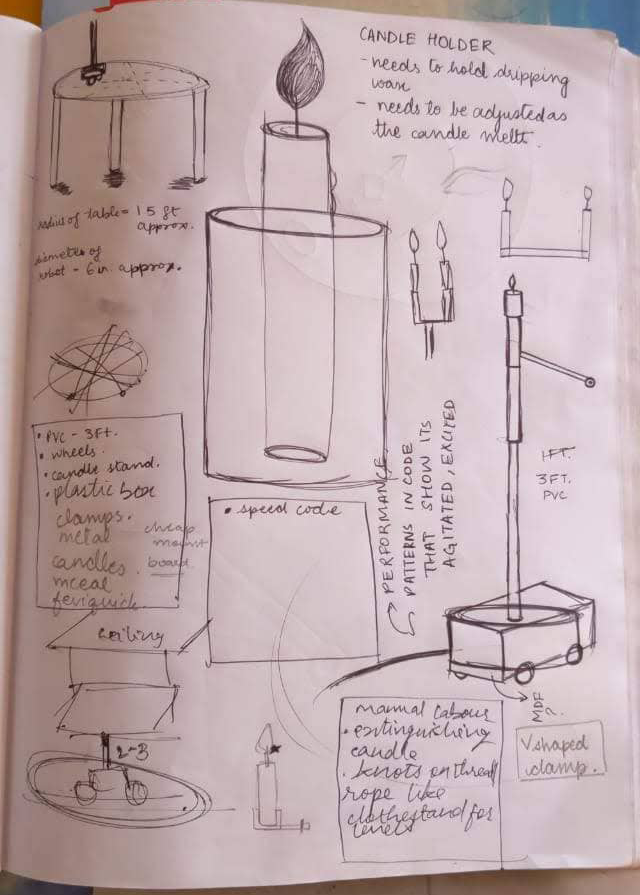 CANDLE HOLDER
- needs to hold dripping
wax
- needs to be adjusted as
the candle melts.
radius of table = 1.5 ft
approx.
diameter of
robot - 6 in. approx.
• PVC - 3FT.
• wheels.
• candle stand.
• plastic box
clamps.
metal
candles.
mseal
feviquick.
cheap
mount
board
• speed code
PERFORMANCE
PATTERNS IN CODE
THAT SHOW ITS
AGITATED, EXCITED
1FT.
3FT.
PVC
ceiling
2-3
manual labour
• extinguishing
candle
• knots on thread
rope like
clothestand for
levels
MDF
?.
V shaped
clamp.